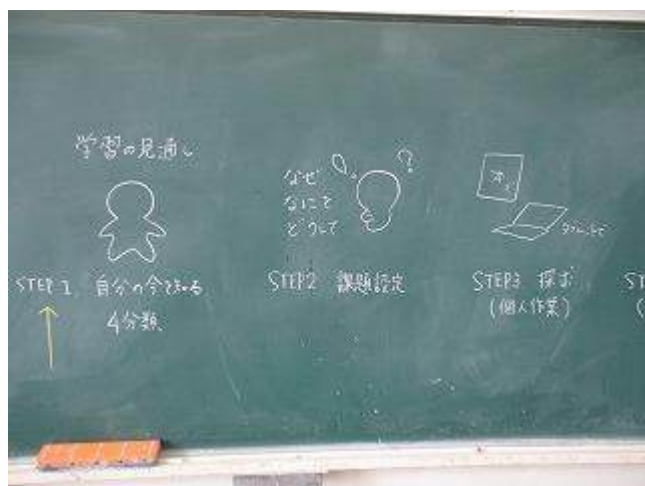 学習の見通し
STEP1 自分の今を知る
4分類
なぜ
なにを
どうして
?
STEP2 課題設定
本
タブレット
STEP3 探求
(個人作業)
ST
(